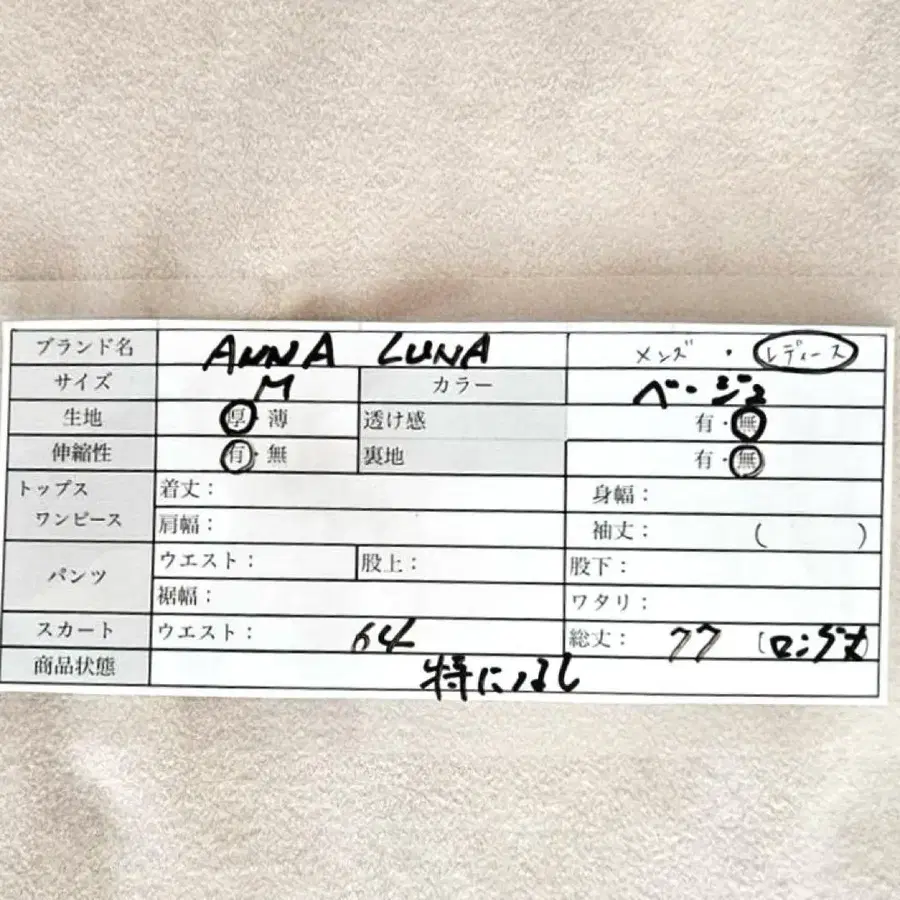 ブランド名 ANNA LUNA メンズ ・ レディース
サイズ M カラー ベージュ
生地 厚・薄 透け感 有・無
伸縮性 有・無 裏地 有・無
トップス ワンピース 着丈： 身幅：
肩幅： 袖丈： ( )
パンツ ウエスト： 股上： 股下：
裾幅： ワタリ：
スカート ウエスト： 64 総丈： 77 [ロング丈]
商品状態 特になし